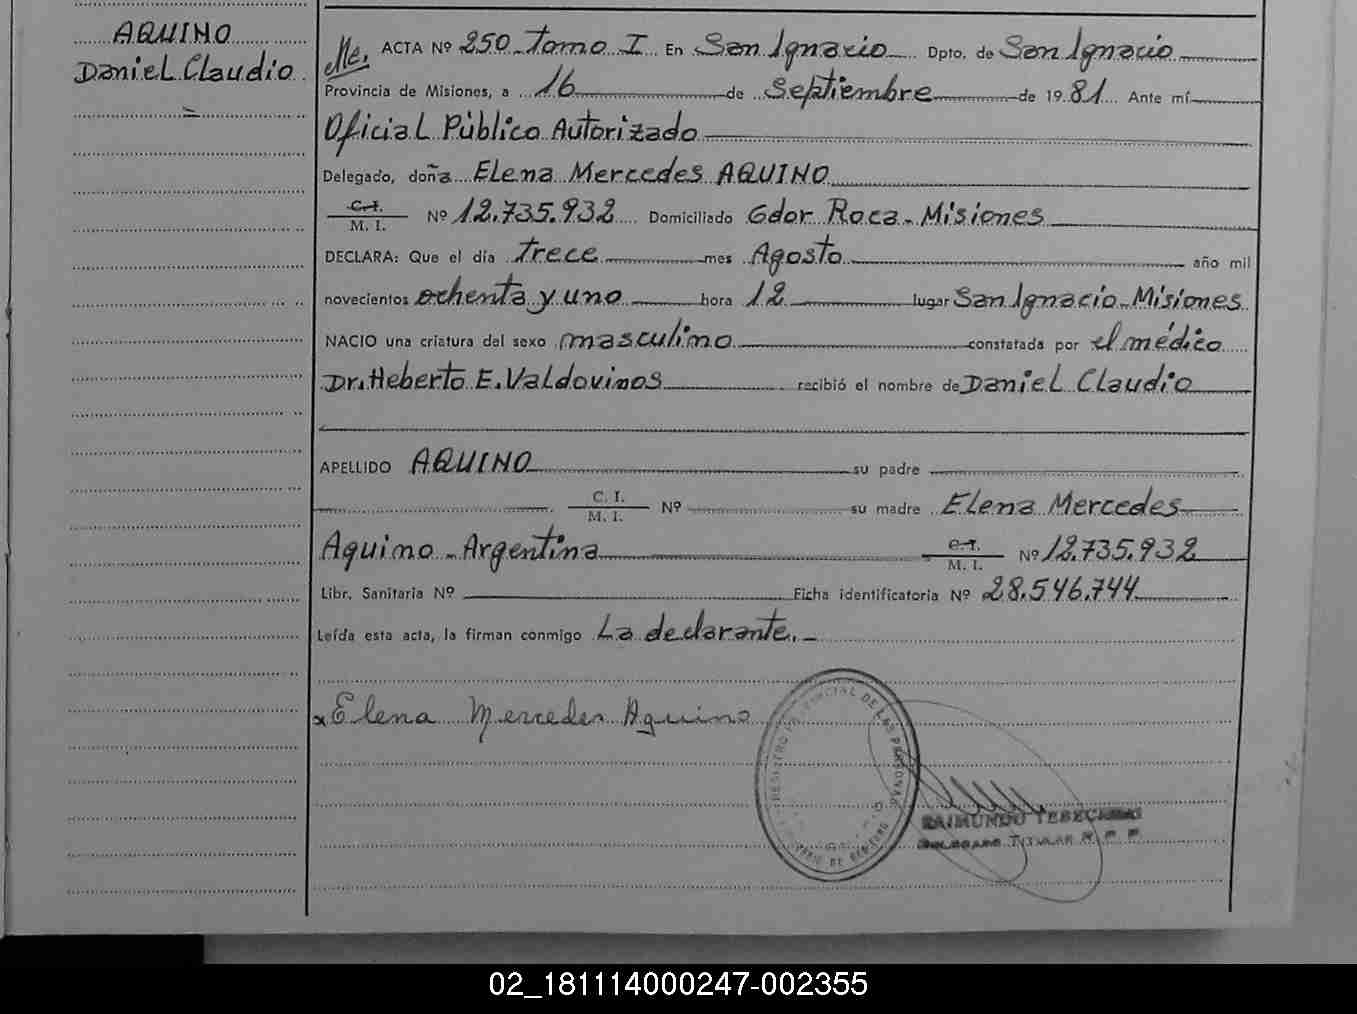 AQUINO
Daniel Claudio
ACTA Nº 250 - Tomo I En San Ignacio Dpto. de San Ignacio
Provincia de Misiones, a 16 de Septiembre de 1981 Ante mí
Oficial Público Autorizado
Delegado, doña Elena Mercedes AQUINO
C.I.
M. I. Nº 12.735.932 Domiciliado Gdor Roca - Misiones
DECLARA: Que el día trece mes Agosto año mil
novecientos ochenta y uno hora 12 lugar San Ignacio - Misiones
NACIO una criatura del sexo masculino constatada por el médico
Dr. Heberto E. Valdovinos recibió el nombre de Daniel Claudio
APELLIDO AQUINO su padre
C. I.
M. I. Nº su madre Elena Mercedes
Aquino - Argentina C.I.
M. I. Nº 12.735.932
Libr. Sanitaria Nº Ficha identificatoria Nº 28.546.744
Leída esta acta, la firman conmigo La declarante. -
x Elena Mercedes Aquino
REGISTRO PROVINCIAL DE LAS PERSONAS
RAIMUNDO
DELEGADO TITULAR R. P. P.
02_181114000247-002355